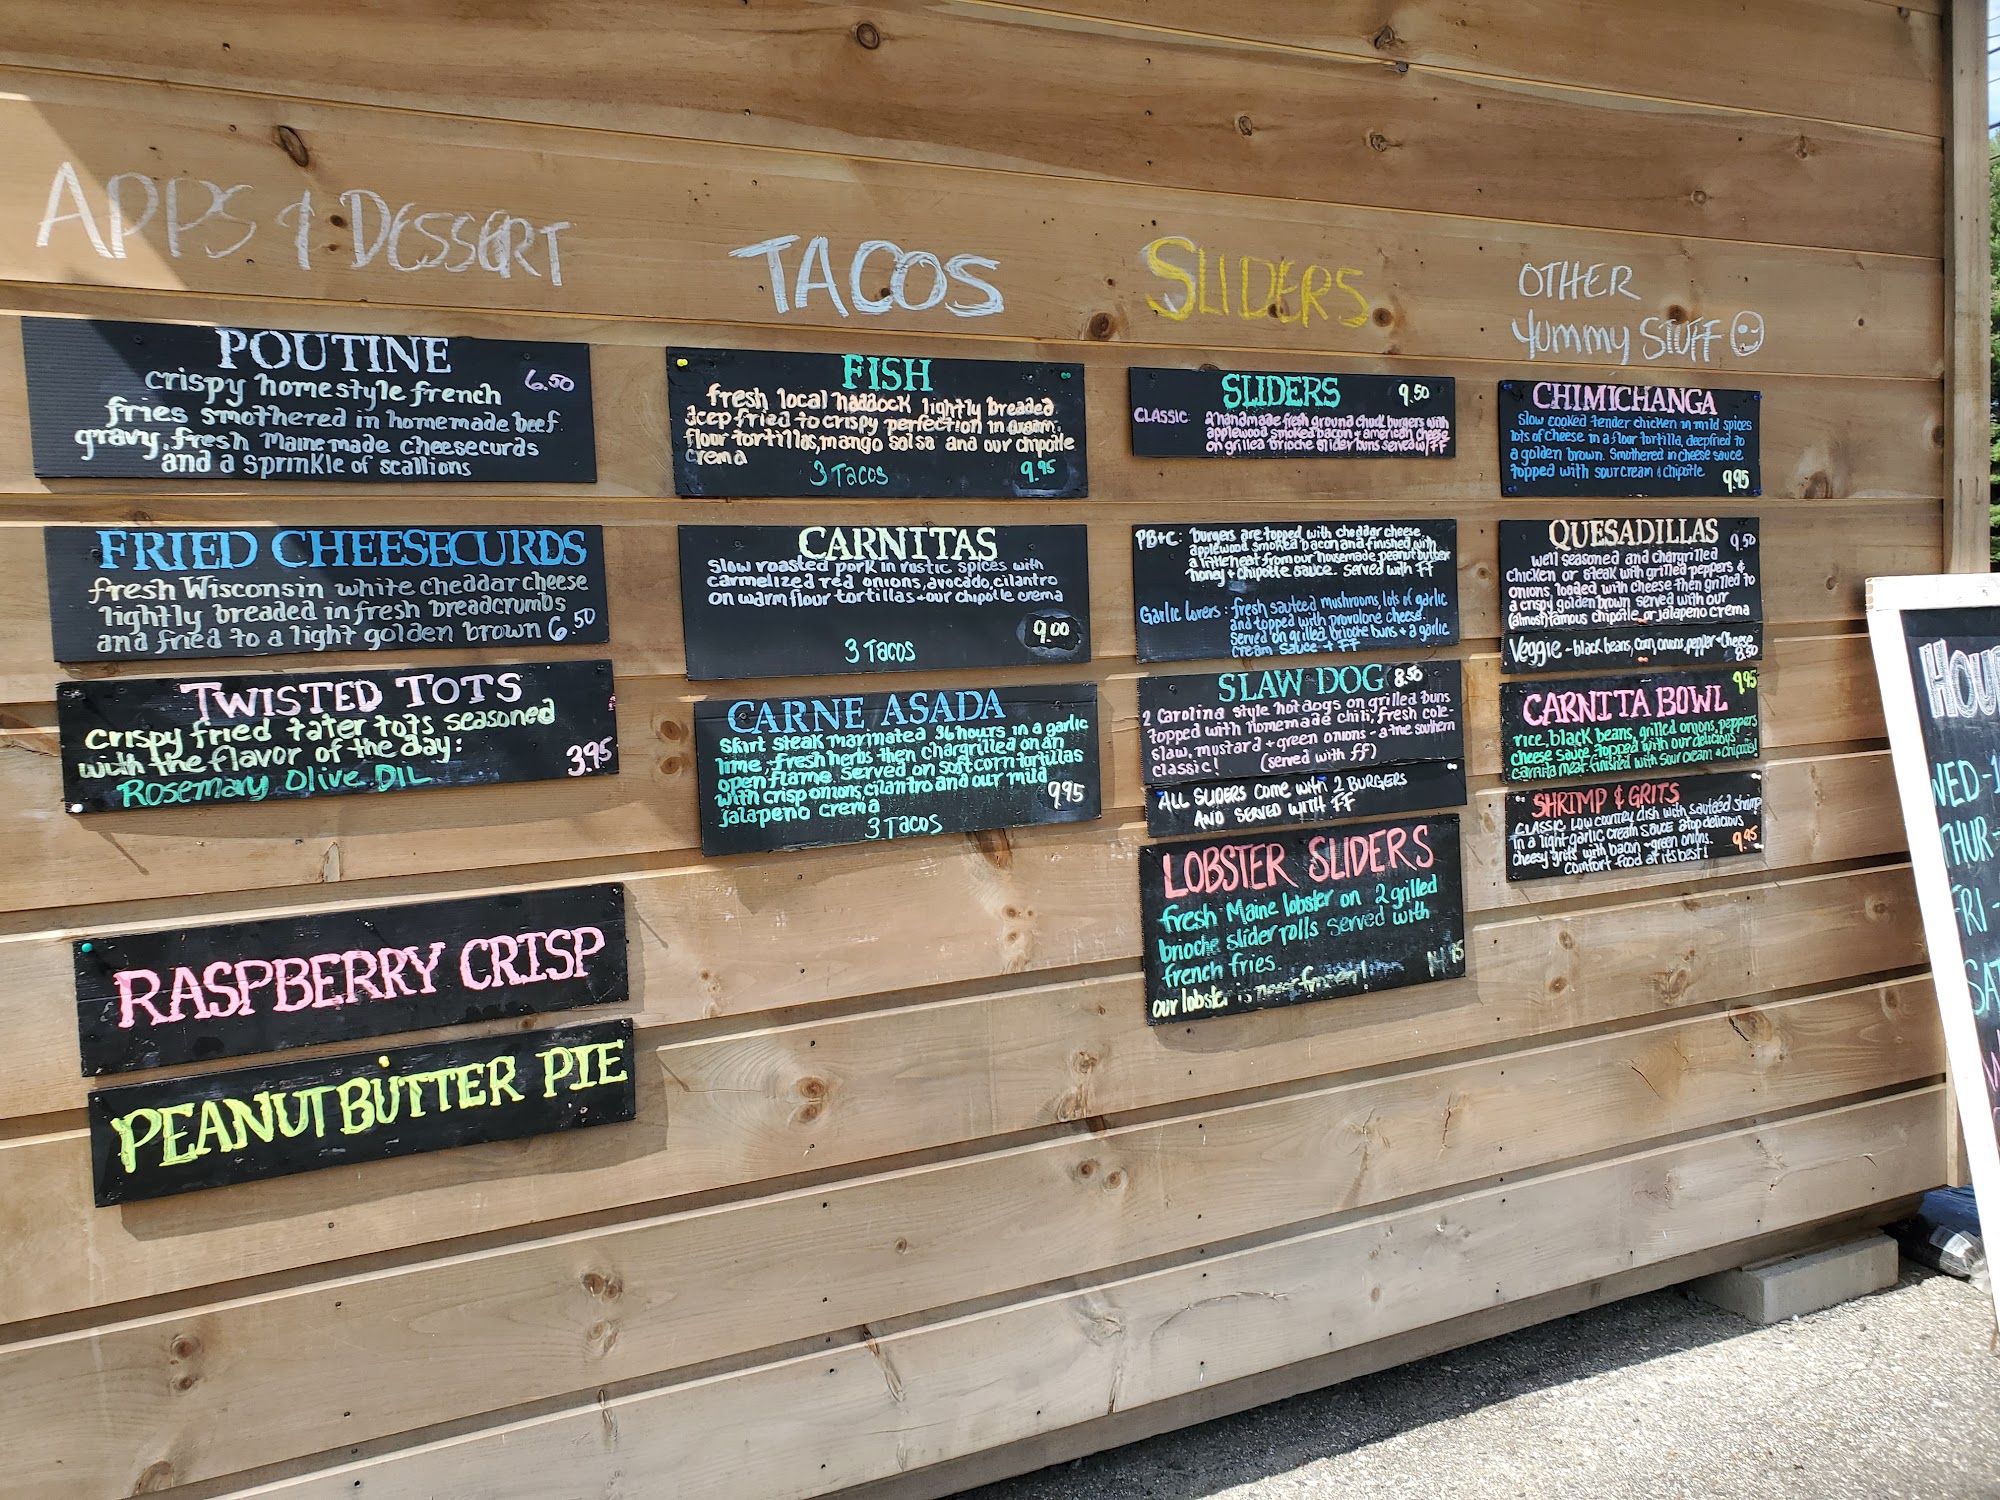 APPS & DESSERT
POUTINE
crispy homestyle french 6.50
fries smothered in homemade beef
gravy, fresh Maine made cheesecurds
and a sprinkle of scallions
FRIED CHEESECURDS
fresh Wisconsin white cheddar cheese
lightly breaded in fresh breadcrumbs
and fried to a light golden brown 6.50
TWISTED TOTS
crispy fried tater tots seasoned
with the flavor of the day: 3.95
Rosemary Olive OIL
RASPBERRY CRISP
PEANUTBUTTER PIE
TACOS
FISH
fresh local haddock lightly breaded
deep fried to crispy perfection in warm
flour tortillas, mango salsa and our chipotle
crema
3 Tacos 9.95
CARNITAS
Slow roasted pork in rustic spices with
carmelized red onions, avocado, cilantro
on warm flour tortillas + our chipotle crema
9.00
3 Tacos
CARNE ASADA
Skirt steak marinated 36 hours in a garlic
lime, fresh herbs then chargrilled on an
open flame. Served on soft corn tortillas
with crisp onions, cilantro and our mild
jalapeno crema 9.95
3 Tacos
SLIDERS
SLIDERS 9.50
CLASSIC: 2 handmade fresh ground chuck burgers with
applewood smoked bacon + american cheese
on grilled brioche slider buns served w/ FF
PB+C: burgers are topped with cheddar cheese
applewood smoked bacon and finished with
a little heat from our housemade peanut butter
honey + chipotle sauce. Served with FF
Garlic lovers: fresh sauteed mushrooms, lots of garlic
and topped with provolone cheese.
Served on grilled brioche buns + a garlic
cream sauce + FF
SLAW DOG 8.50
2 Carolina style hotdogs on grilled buns
topped with homemade chili, fresh cole-
slaw, mustard + green onions - a true southern
classic! (served with ff)
ALL SLIDERS COME WITH 2 BURGERS
AND SERVED WITH FF
LOBSTER SLIDERS
fresh Maine lobster on 2 grilled
brioche slider rolls served with
french fries.
our lobster is never frozen!
OTHER
Yummy STUFF
CHIMICHANGA
Slow cooked tender chicken in mild spices
lots of cheese in a flour tortilla, deepfried to
a golden brown. Smothered in cheese sauce
topped with sour cream & chipotle 9.95
QUESADILLAS
well seasoned and chargrilled 9.50
chicken or steak with grilled peppers &
onions, loaded with cheese then grilled to
a crisp golden brown served with our
(almost) famous chipotle or jalapeno crema
Veggie - black beans, corn, onions, pepper + Cheese
8.50
CARNITA BOWL 9.95
rice, black beans, grilled onions, peppers
cheese sauce topped with our delicious
carnita meat finished with sour cream + chipotle!
SHRIMP & GRITS
CLASSIC Low country dish with sautéed shrimp
in a light garlic cream sauce atop delicious
cheesy grits with bacon + green onions. 9.95
Comfort food at its best!
WED -
THUR -
FRI -
SAT